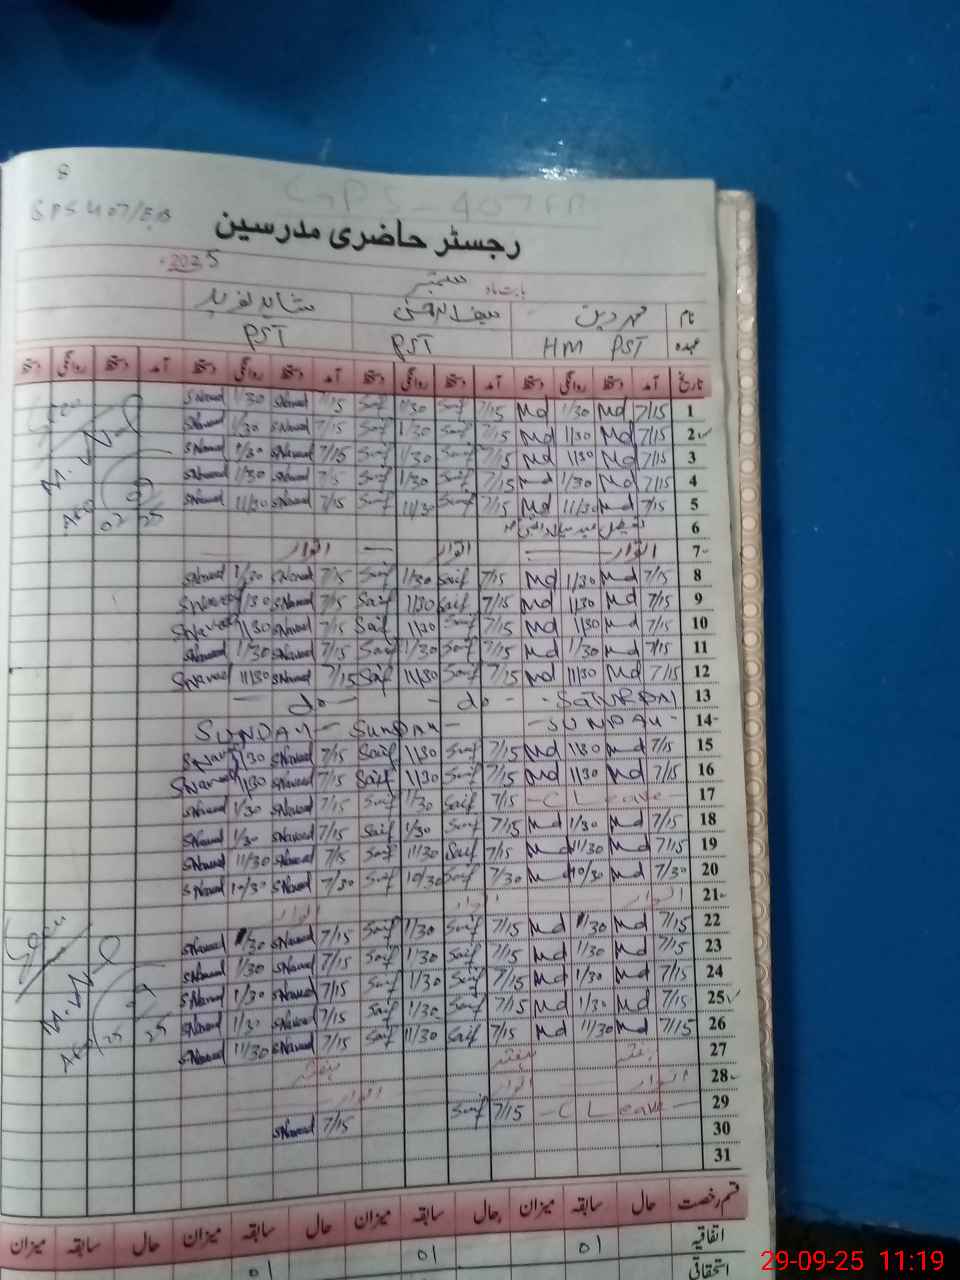 8
GPS 407/EB
GPS-407EB
رجسٹر حاضری مدرسین
2025
بابت ماہ ستمبر
نام
عہدہ HM PST PST PST
تاریخ آمد دستخط روانگی دستخط آمد دستخط روانگی دستخط آمد دستخط روانگی دستخط آمد دستخط روانگی دستخط
1 7/15 Md 1/30 Md 7/15 Saif 1/30 Saif 7/15 SNaveed 1/30 SNaveed
2 7/15 Md 1/30 Md 7/15 Saif 1/30 Saif 7/15 SNaveed 1/30 SNaveed
3 7/15 Md 1/30 Md 7/15 Saif 1/30 Saif 7/15 SNaveed 1/30 SNaveed
4 7/15 Md 1/30 Md 7/15 Saif 1/30 Saif 7/15 SNaveed 1/30 SNaveed
5 7/15 Md 11/30 Md 7/15 Saif 11/30 Saif 7/15 SNaveed 11/30 SNaveed
6
7 اتوار اتوار اتوار
8 7/15 Md 1/30 Md 7/15 Saif 1/30 Saif 7/15 SNaveed 1/30 SNaveed
9 7/15 Md 1/30 Md 7/15 Saif 1/30 Saif 7/15 SNaveed 1/30 SNaveed
10 7/15 Md 1/30 Md 7/15 Saif 1/30 Saif 7/15 SNaveed 1/30 SNaveed
11 7/15 Md 1/30 Md 7/15 Saif 1/30 Saif 7/15 SNaveed 1/30 SNaveed
12 7/15 Md 11/30 Md 7/15 Saif 11/30 Saif 7/15 SNaveed 11/30 SNaveed
13 - do - - do -
14 - SUNDAY - SUNDAY - SUNDAY -
15 7/15 Md 1/30 Md 7/15 Saif 1/30 Saif 7/15 SNaveed 1/30 SNaveed
16 7/15 Md 1/30 Md 7/15 Saif 1/30 Saif 7/15 SNaveed 1/30 SNaveed
17 - C Leave - 7/15 Saif 1/30 Saif 7/15 SNaveed 1/30 SNaveed
18 7/15 Md 1/30 Md 7/15 Saif 1/30 Saif 7/15 SNaveed 1/30 SNaveed
19 7/15 Md 11/30 Md 7/15 Saif 11/30 Saif 7/15 SNaveed 11/30 SNaveed
20 7/30 Md 10/30 Md 7/30 Saif 10/30 Saif 7/30 SNaveed 10/30 SNaveed
21 اتوار اتوار اتوار
22 7/15 Md 1/30 Md 7/15 Saif 1/30 Saif 7/15 SNaveed 1/30 SNaveed
23 7/15 Md 1/30 Md 7/15 Saif 1/30 Saif 7/15 SNaveed 1/30 SNaveed
24 7/15 Md 1/30 Md 7/15 Saif 1/30 Saif 7/15 SNaveed 1/30 SNaveed
25 7/15 Md 1/30 Md 7/15 Saif 1/30 Saif 7/15 SNaveed 1/30 SNaveed
26 7/15 Md 11/30 Md 7/15 Saif 11/30 Saif 7/15 SNaveed 11/30 SNaveed
27 ہفتہ ہفتہ ہفتہ
28 اتوار اتوار اتوار
29 - C Leave - 7/15 Saif 7/15 SNaveed
30
31
قسم رخصت حال سابقہ میزان حال سابقہ میزان حال سابقہ میزان حال سابقہ میزان
اتفاقیہ 01 01 01
استحقاقی
29-09-25 11:19